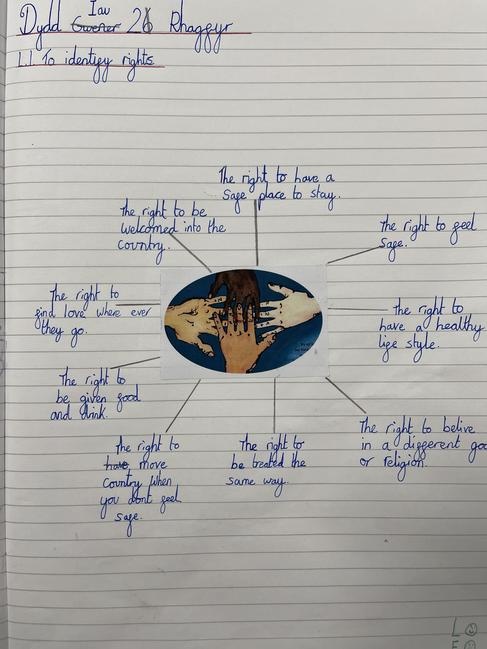 Dydd Iau 26 Rhagfyr
L.I. To identify rights.
The right to have a
safe place to stay.
The right to be
welcomed into the
country.
The right to feel
safe.
The right to
find love where ever
they go.
The right to
have a healthy
life style.
The right to
be given food
and drink.
The right to
move
country when
you dont feel
safe.
The right to
be treated the
same way.
The right to belive
in a different god
or religion.